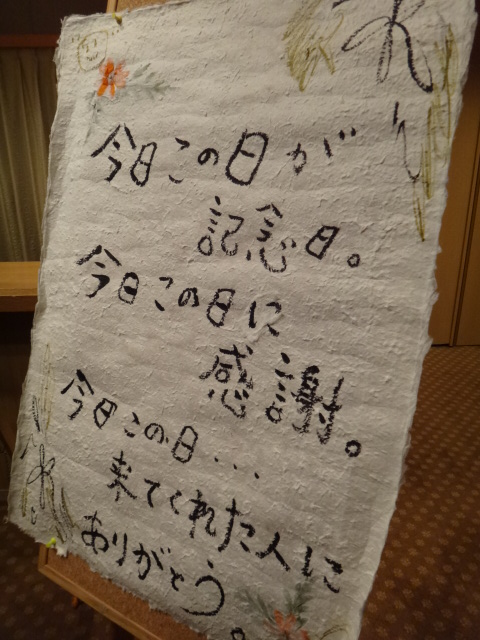 今日この日が
記念日。
今日この日に
感謝。
今日この日...
来てくれた人に
ありがとう。